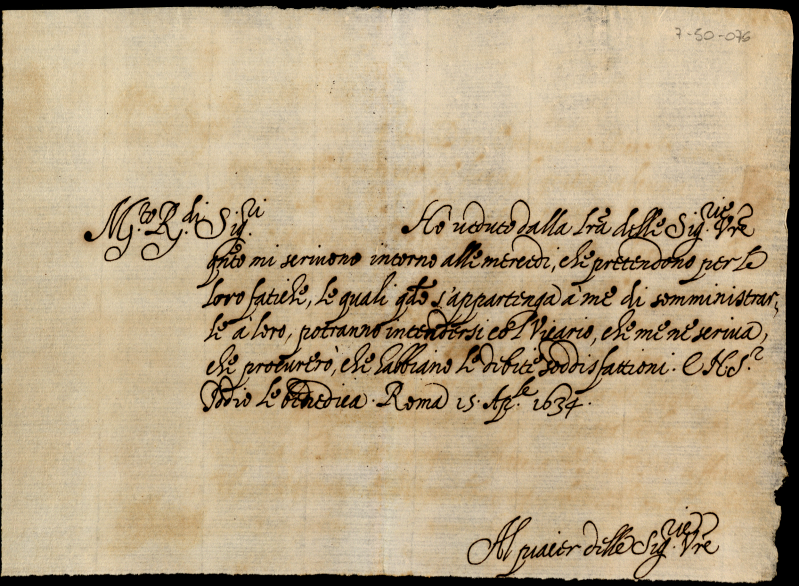 7-50-076
M.to R.di Sig.ri Hò veduto dalla lra delle Sig.rie Vre
qnto mi scrivono intorno alle mercedi, che pretendono per le
loro fatiche, le quali qdo s'appartenga à me di somministrar-
le à loro, potranno intendersi col Vicario, che me ne scriva,
che procurerò, che habbiano le debite soddisfattioni. E N.S.r
Iddio le benedica. Roma 15. Ap.le 1634.
Al piacer delle Sig.rie Vre